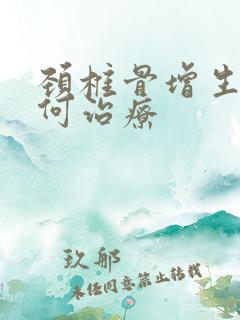 颈椎骨增生
何治疗
玖郎
未经同意禁止转载